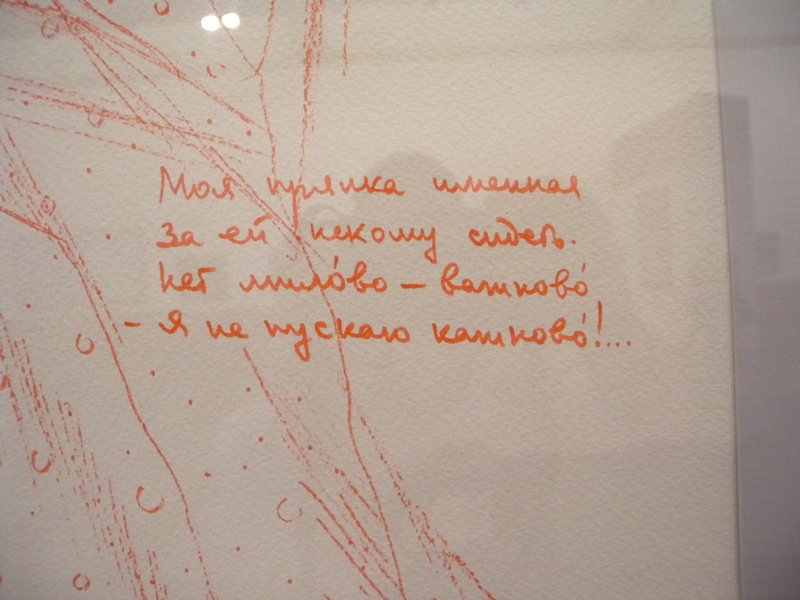 Моя прялка именная
За ей некому сидеть.
Нет мило́во – важново́
– Я не пускаю кажново́!...